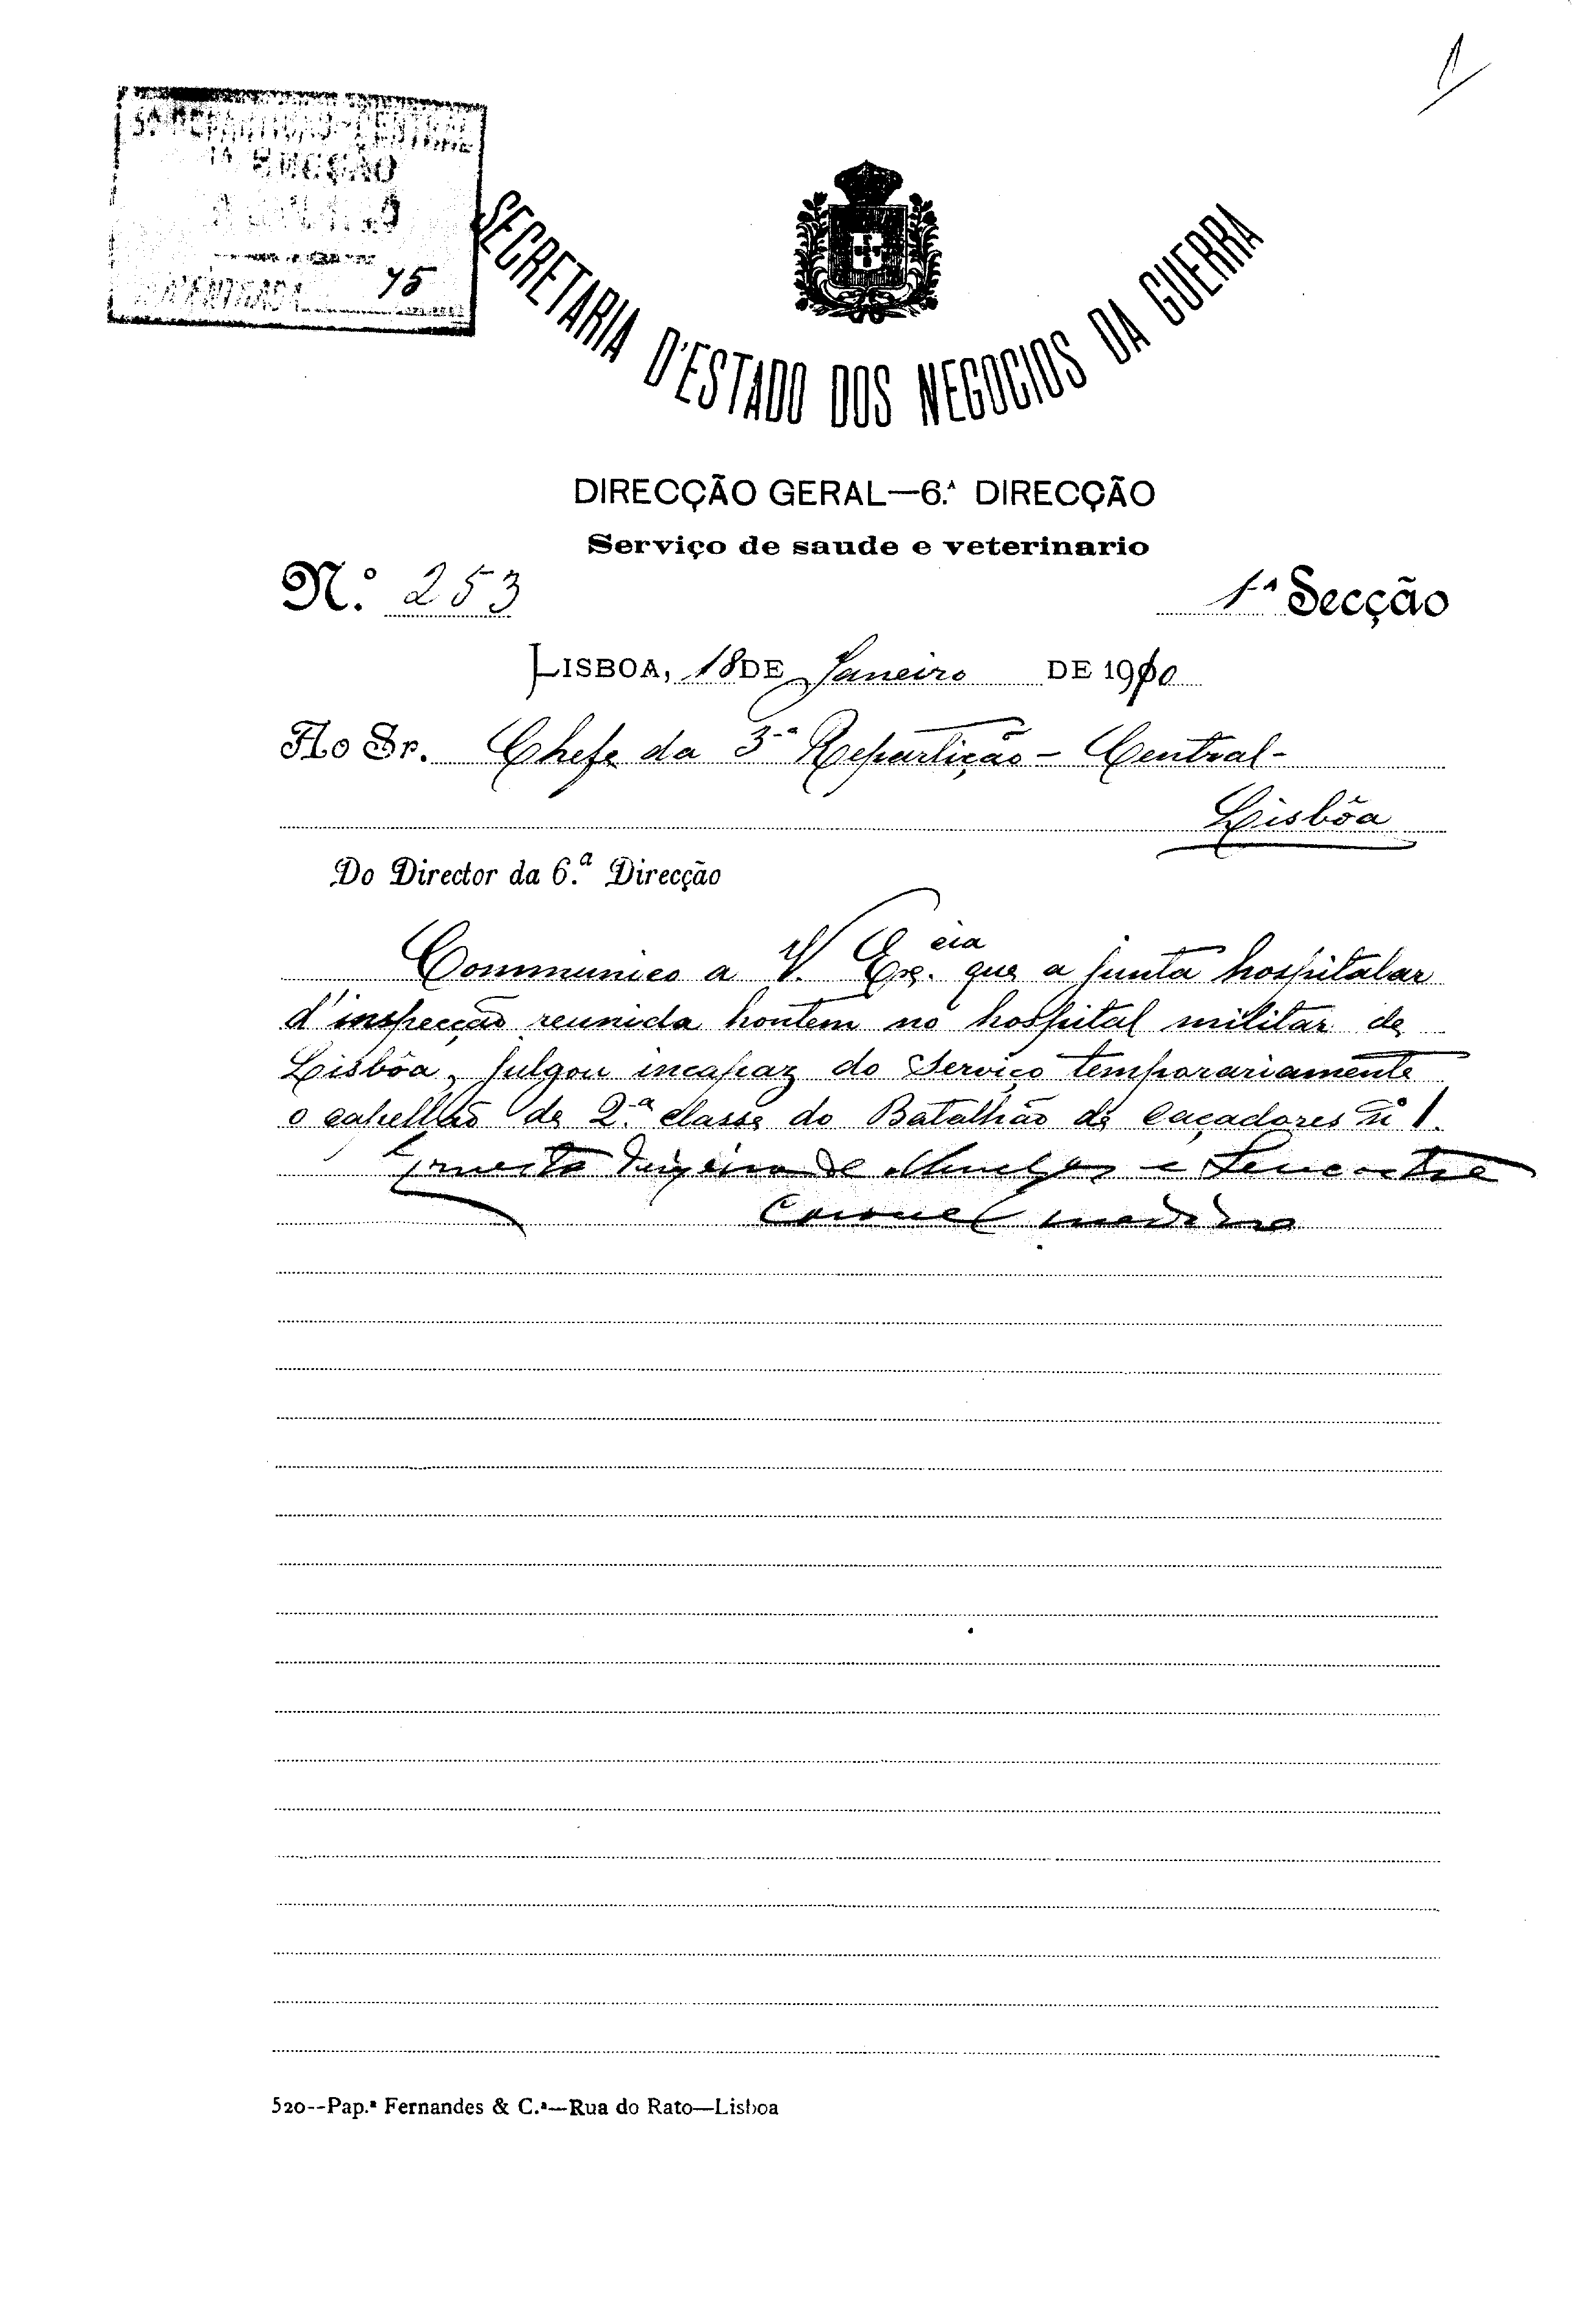 3ª REPARTIÇÃO-CENTRAL
1ª SECÇÃO
Nº ENTRADA 75
SECRETARIA D'ESTADO DOS NEGOCIOS DA GUERRA
DIRECÇÃO GERAL—6.ª DIRECÇÃO
Serviço de saude e veterinario
N.º 253 1ª Secção
LISBOA, 18 DE Janeiro DE 1910
Ao Sr. Chefe da 3ª Repartição - Central -
Lisbôa
Do Director da 6.ª Direcção
Communico a V. Exª.cia que a junta hospitalar
d'inspecção reunida hontem no hospital militar de
Lisbôa, julgou incapaz do serviço temporariamente
o capellão de 2.ª classe do Batalhão de Caçadores nº 1.
Ernesto de e Lencastre
Coronel medico
520--Pap.ª Fernandes & C.ª—Rua do Rato—Lisboa